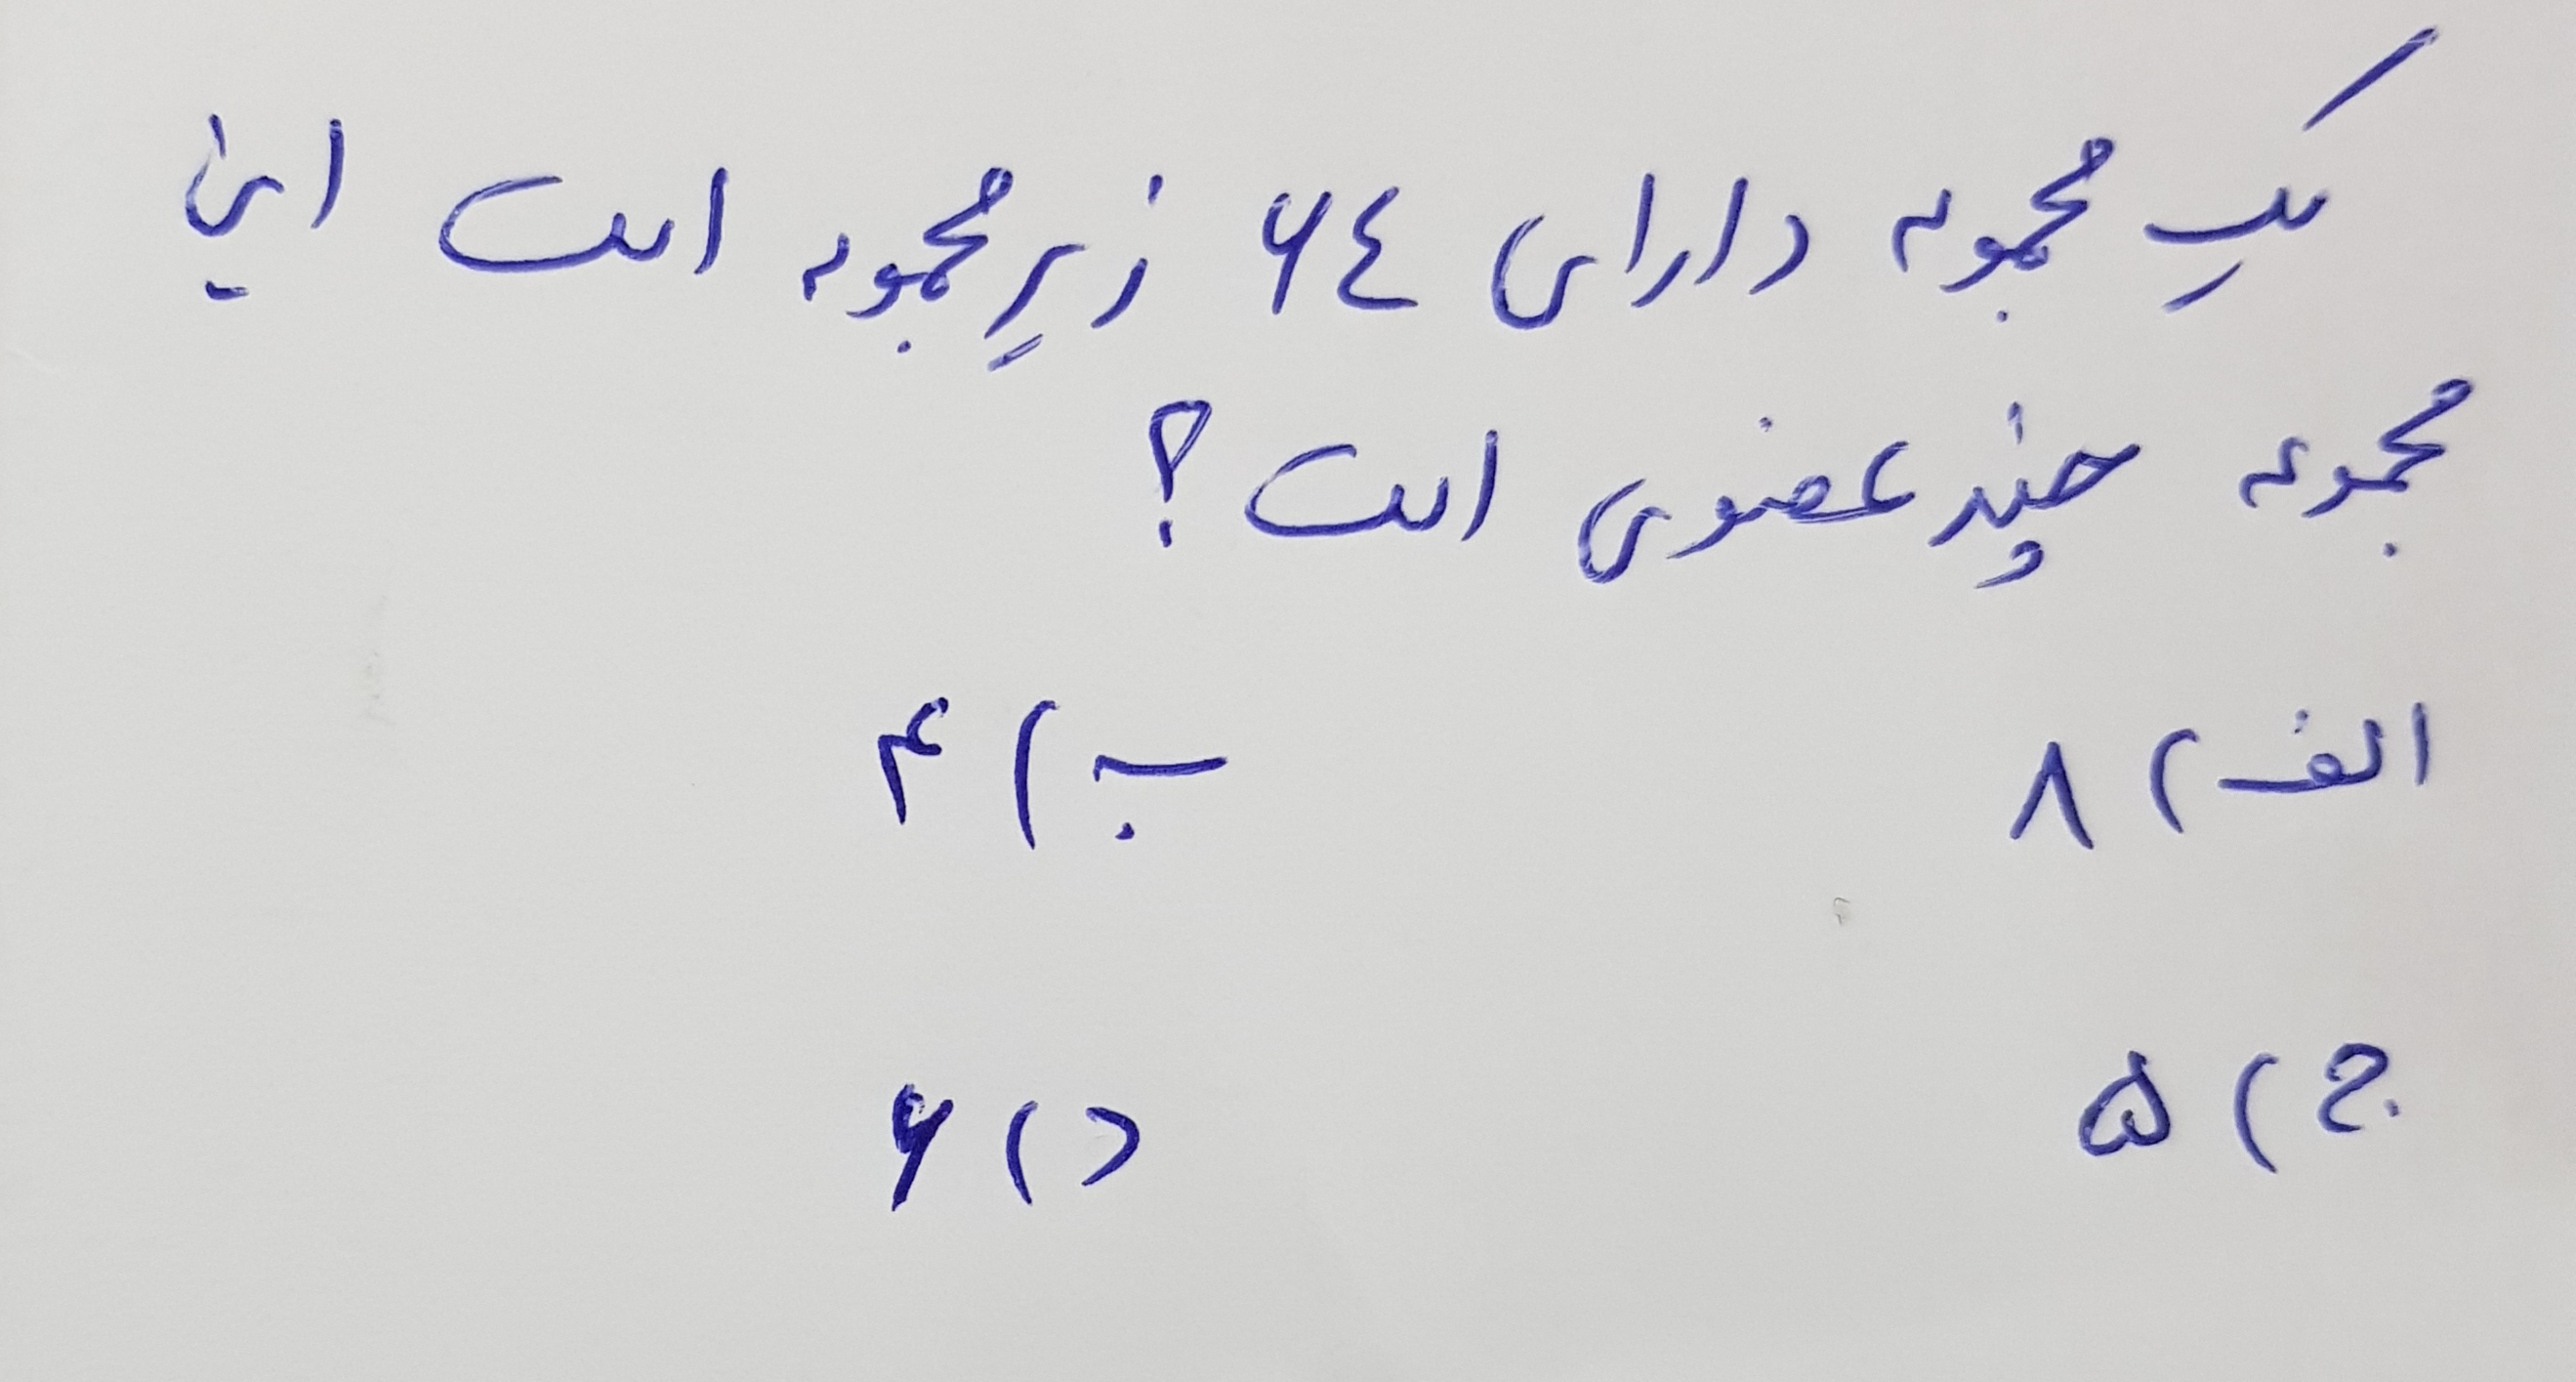 یک مجموعه دارای ۶٤ زیرمجموعه است این
مجموعه چند عضوی است؟
الف) ۸ ب) ۴
ج) ۵ د) ۶